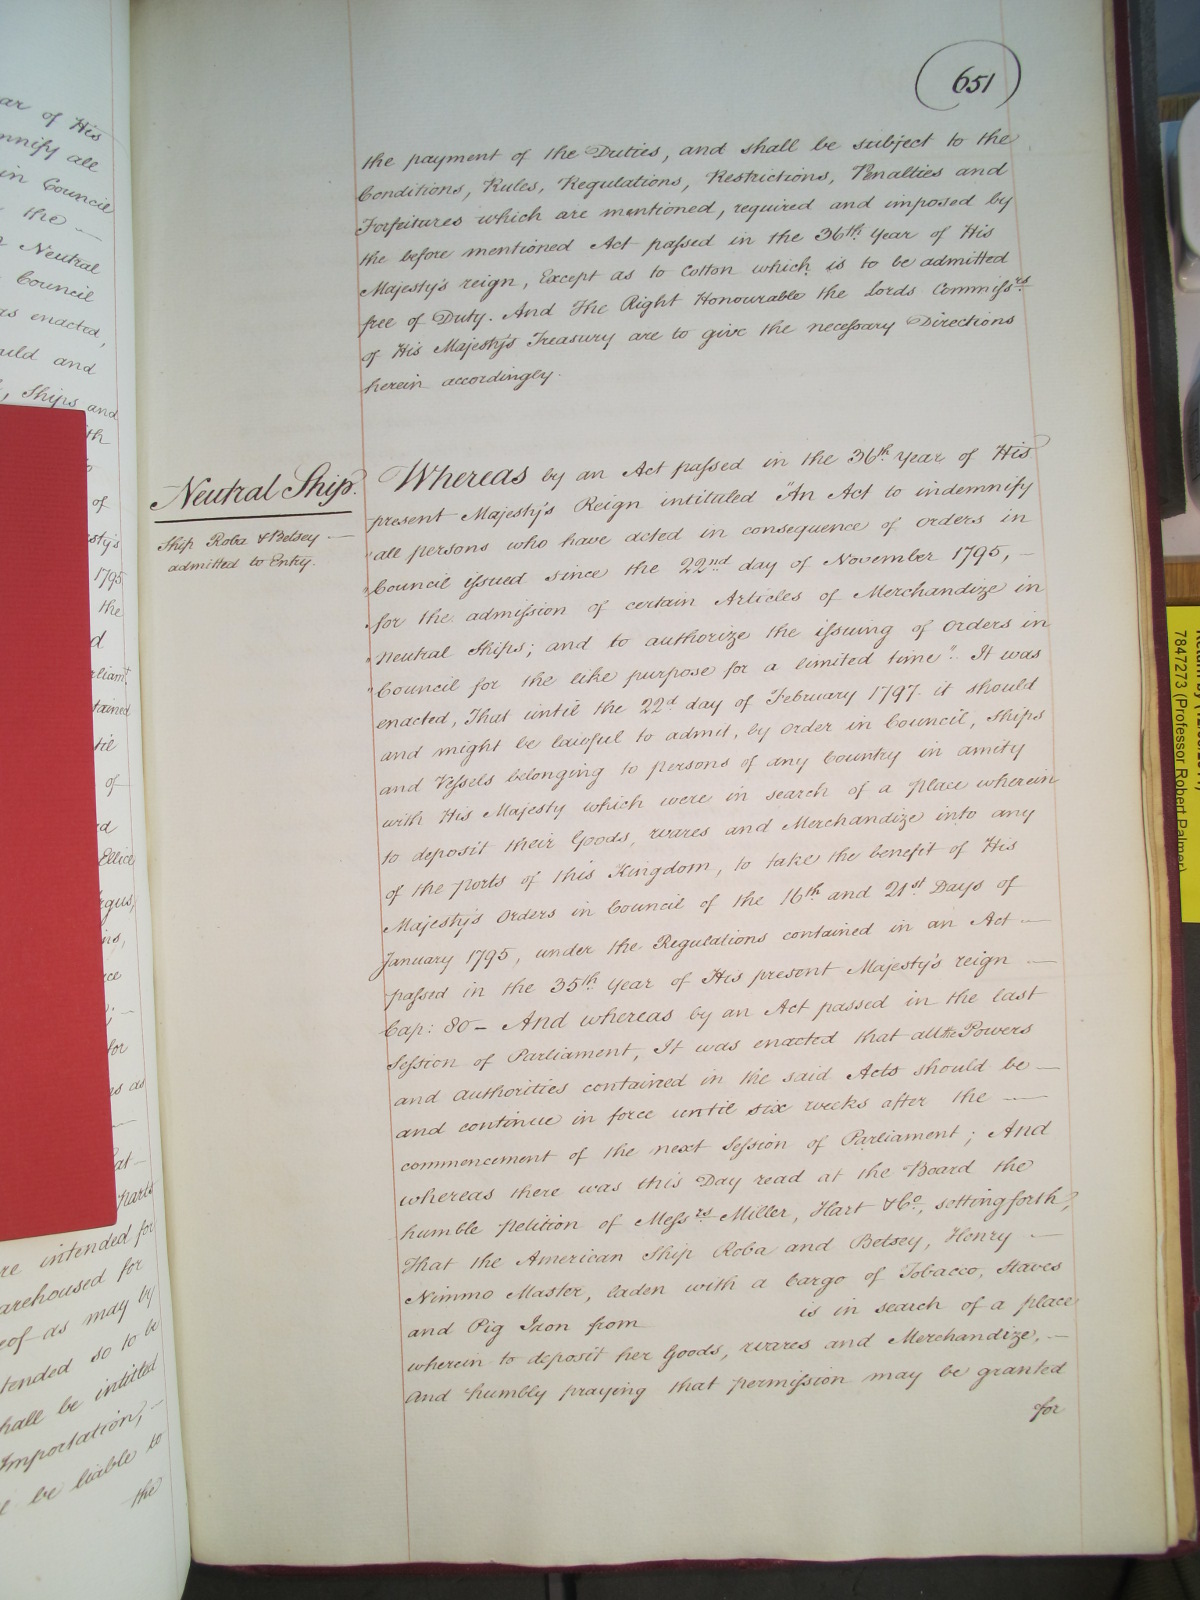 651
the payment of the Duties, and shall be subject to the
Conditions, Rules, Regulations, Restrictions, Penalties and
Forfeitures which are mentioned, required and imposed by
the before mentioned Act passed in the 36th Year of His
Majesty's reign, Except as to Cotton which is to be admitted
free of Duty. And The Right Honourable the Lords Commissrs
of His Majesty's Treasury are to give the necessary Directions
herein accordingly.
Neutral Ship.
Ship Roba & Betsey —
admitted to Entry.
Whereas by an Act passed in the 36th Year of His
present Majesty's Reign intituled "An Act to indemnify
"all persons who have acted in consequence of Orders in
"Council issued since the 22nd day of November 1795, —
"for the admission of certain Articles of Merchandize in
"Neutral Ships; and to authorize the issuing of Orders in
"Council for the like purpose for a limited time". It was
enacted, That until the 22d day of February 1797 it should
and might be lawful to admit, by Order in Council, Ships
and Vessels belonging to persons of any Country in amity
with His Majesty which were in search of a place wherein
to deposit their Goods, wares and Merchandize into any
of the Ports of this Kingdom, to take the benefit of His
Majesty's Orders in Council of the 16th and 21st Days of
January 1795, under the Regulations contained in an Act —
passed in the 35th Year of His present Majesty's reign —
Cap: 80 — And whereas by an Act passed in the last
Session of Parliament, It was enacted that all the Powers
and authorities contained in the said Acts should be —
and continue in force until six weeks after the —
commencement of the next Session of Parliament; And
whereas there was this Day read at the Board the
humble Petition of Messrs Miller, Hart & Co, setting forth,
That the American Ship Roba and Betsey, Henry —
Nimmo Master, laden with a Cargo of Tobacco, Staves
and Pig Iron from is in search of a place
wherein to deposit her Goods, wares and Merchandize, —
And humbly praying that permission may be granted
for
ar of His
mnify all
in Council
the —
Neutral
Council
as enacted,
uld and
, Ships and
th
of
esty's
1795
the
d
rliamt
tained
til
of
d
Ellice
rgus,
ce
for
as
at —
Parts
re intended for
arehoused for
eof as may by
tended so to be
hall be intitled
Importation, —
be liable to
the
7847273 (Professor Robert Palmer)